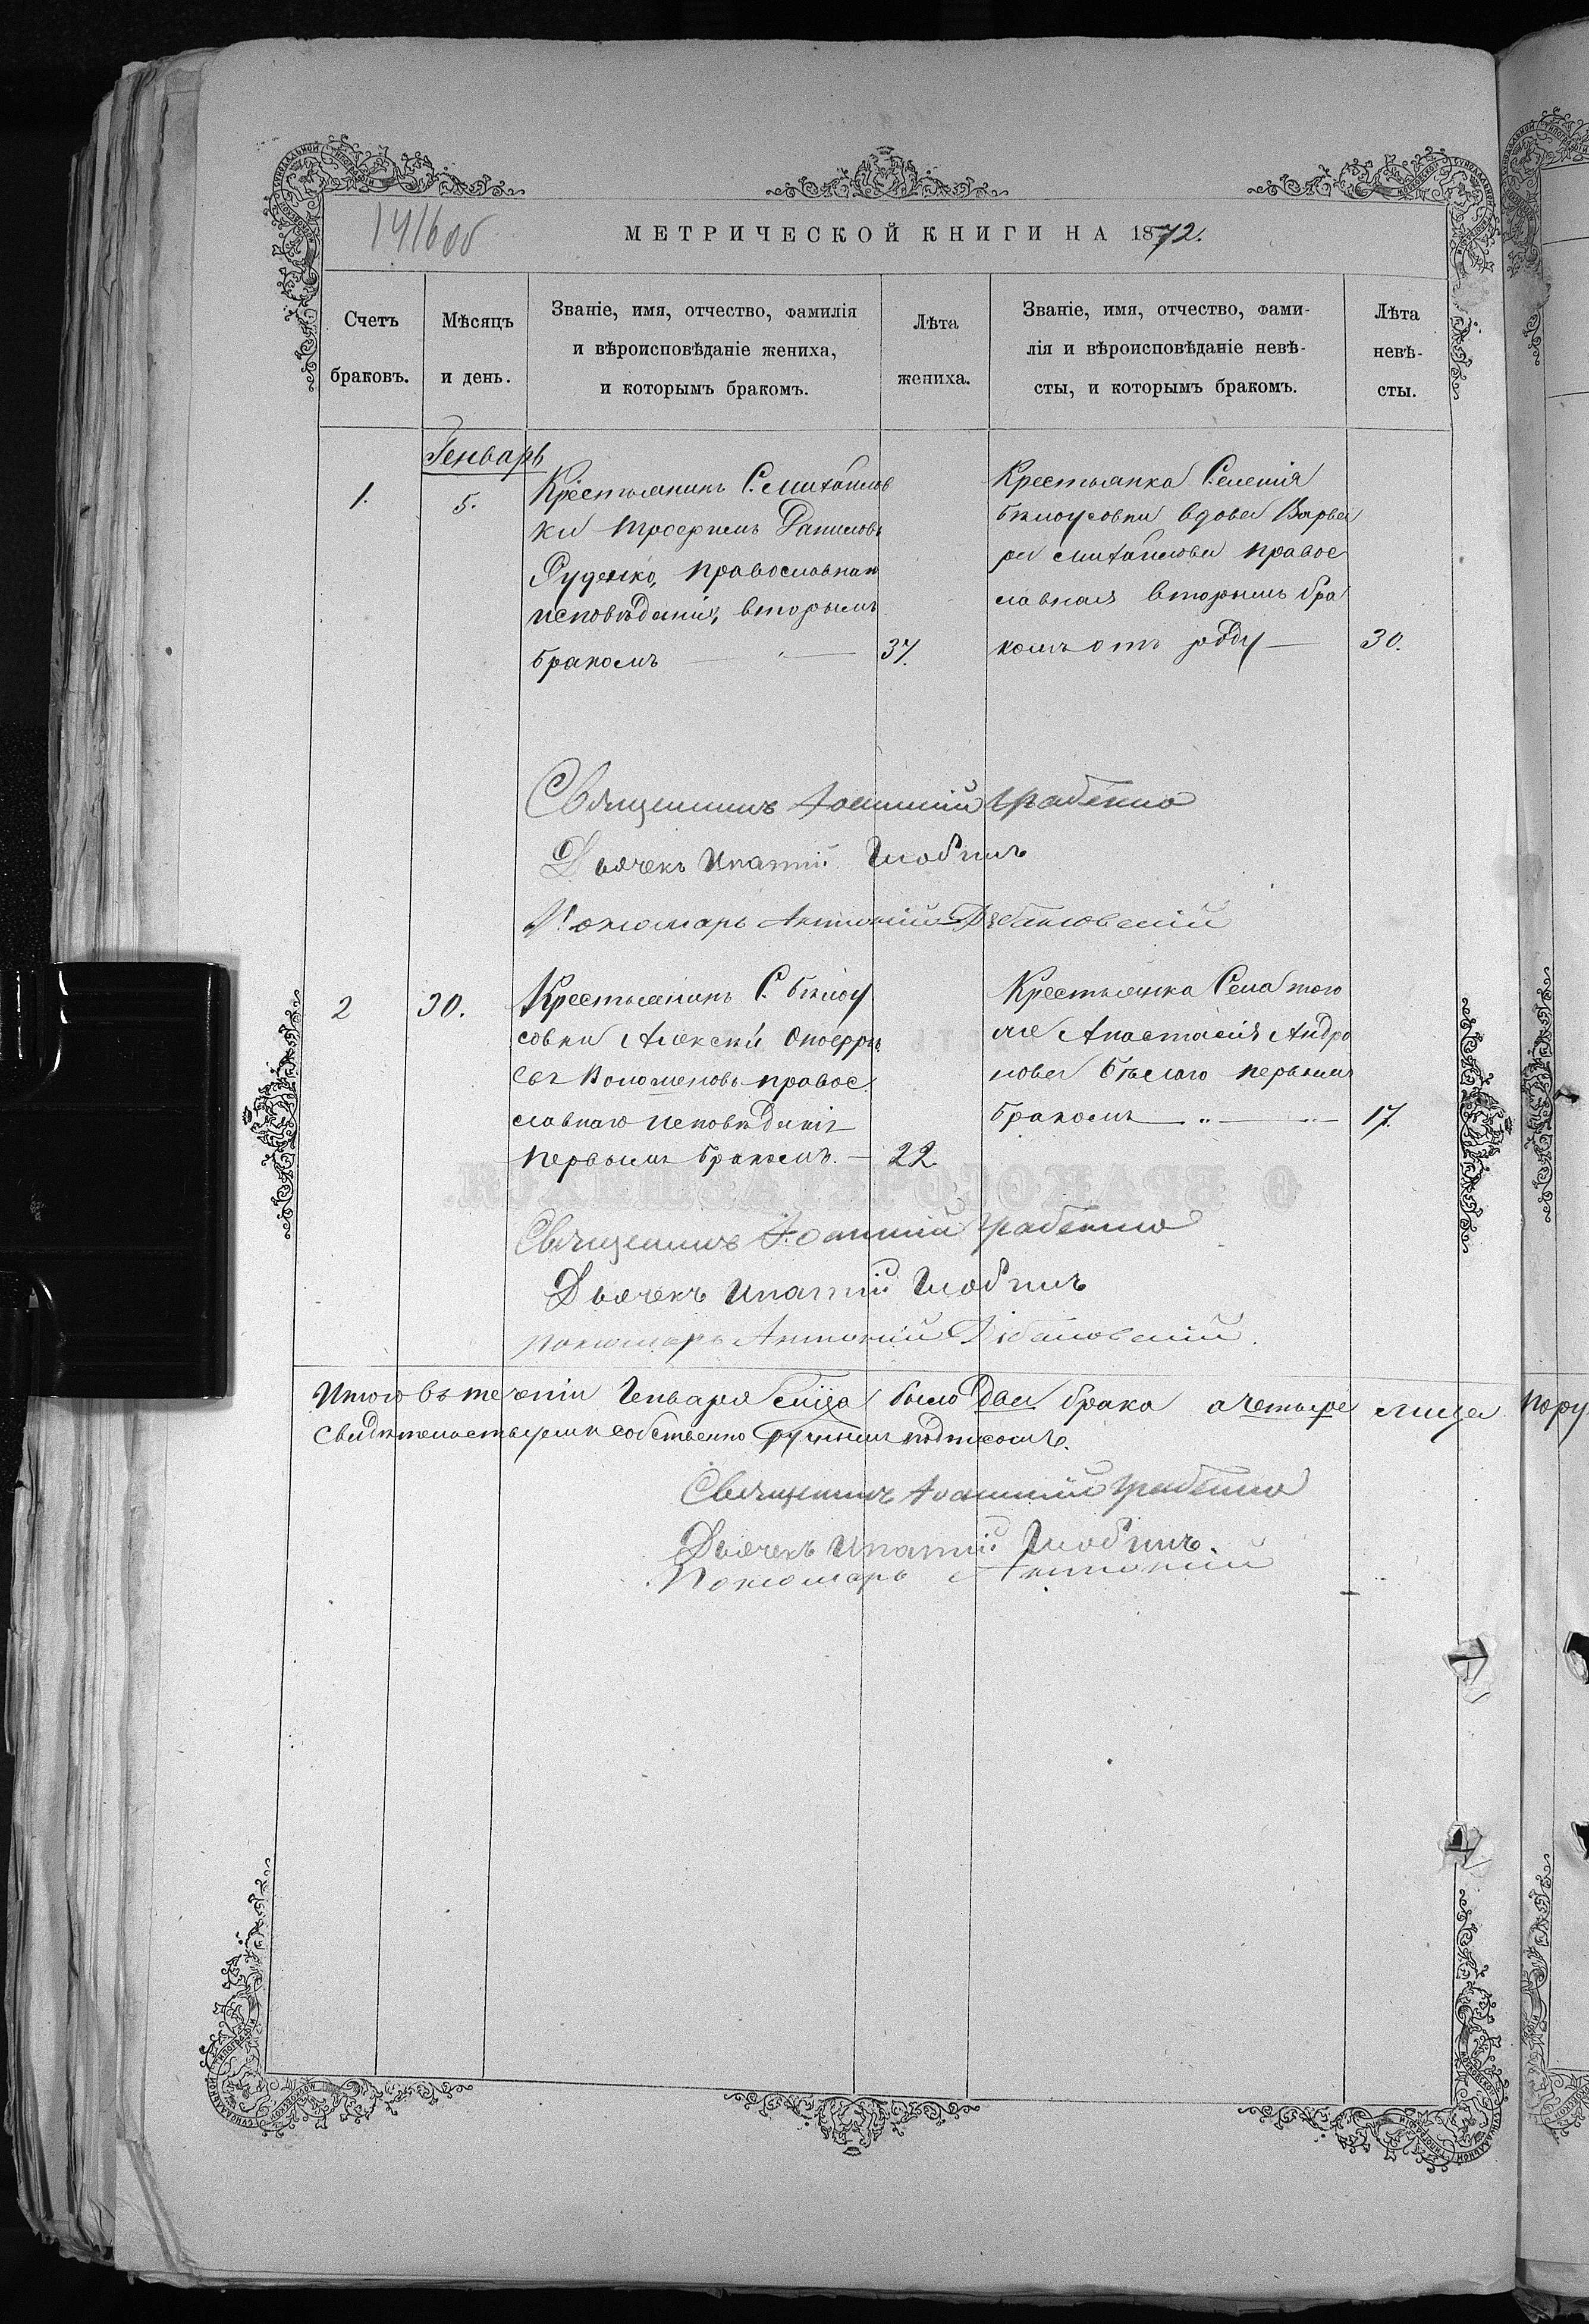 141 об
МЕТРИЧЕСКОЙ КНИГИ НА 1872.
Счетъ браковъ.
Мѣсяцъ и день.
Званіе, имя, отчество, фамилія
и вѣроисповѣданіе жениха,
и которымъ бракомъ.
Лѣта
жениха.
Званіе, имя, отчество, фами-
лія и вѣроисповѣданіе невѣ-
сты, и которымъ бракомъ.
Лѣта
невѣ-
сты.
Генварь
1.
5.
Крестьянинъ С. Михайлов
ки Трофимъ Даниловъ
Руденко, православнаго
исповѣданія, вторымъ
бракомъ
37.
Крестьянка Селенія
Бѣлоусовки вдова Варва
ра Михайлова правос
лавная вторымъ бра
комъ отъ роду
30.
Священникъ Іоанникій Грабенко
Дьячекъ Ипатій
Пономарь Антоній
2
30.
Крестьянинъ С. Бѣлоу
совки Алексѣй Онофріе
въ правос
лавнаго исповѣданія
первымъ бракомъ.
22.
Крестьянка Села того
же Анастасія Андро
нова Бѣлаго первымъ
бракомъ
17.
Священникъ Іоанникій Грабенко
Дьячекъ Ипатій
Пономарь Антоній
Итого въ теченіи Генваря было два брака а четыре лица
свидѣтельствуемъ собственно ручнымъ подписомъ.
Священникъ Іоанникій Грабенко
Дьячекъ Ипатій
Пономарь Антоній